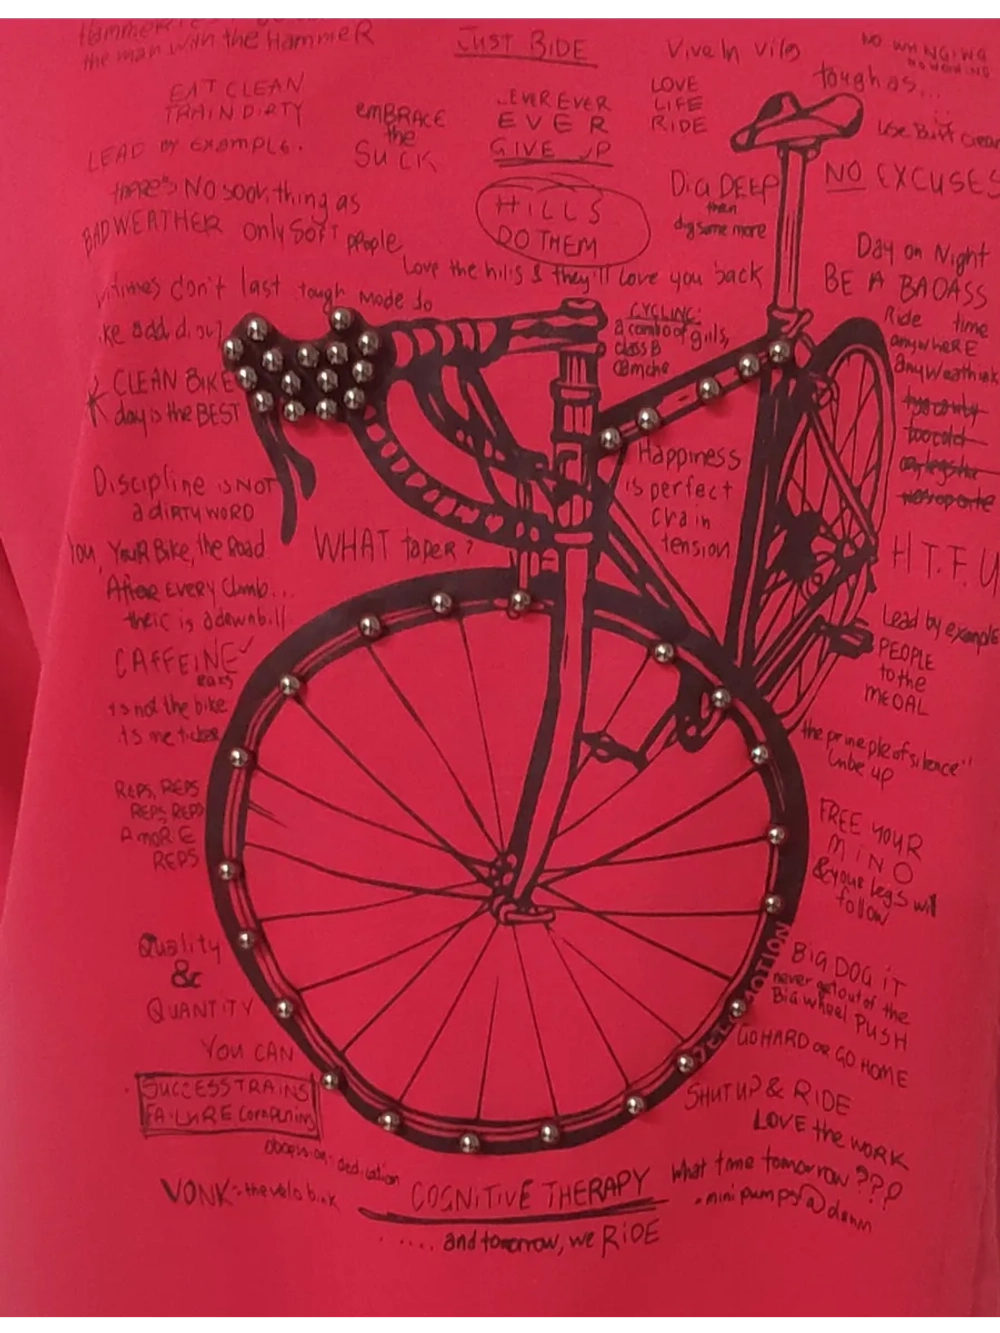 the man with the HammeR
JUST BIDE
Vive
NO WHNGING
tough as...
EAT CLEAN
TRAIN DIRTY
LEAD BY EXAMPLE.
EMBRACE
the
SUCK
EVER EVER
EVER
GIVE UP
LOVE
LIFE
RIDE
NO EXCUSES
DIG DEEP
then
dig some more
THERE'S NO sooch thing as
BAD WEATHER only SOFT people
HILLS
DO THEM
Love the hills & they'll love you back
Day on Night
BE A BADASS
times don't last tough mode do
CYCLING:
a combo of gills,
class B
Ride time
anywhere
CLEAN BIKE
day is the BEST
Happiness
is perfect
chain
tension
Discipline is NOT
a diRTY WORD
You, YouR Bike, the Road
WHAT taper?
H.T.F.U
After EVERY climb...
there is a downhill
CAFFEINE
is not the bike
Lead by example
PEOPLE
to the
MEDAL
the principle of silence"
REPS, REPS
REPS, REPS
A moRE
REPS
FREE YOUR
MIND
& your legs will
follow
Quality
&
QUANTITY
BIG DOG iT
never get out of the
Big wheel PUSH
GO HARD OR GO HOME
YOU CAN
SUCCESS TRAINS
FAILURE
SHUT UP & RIDE
LOVE the WORK
dedication
VONK:
COGNITIVE THERAPY
what time tomorrow ???
mini pumps @ dawn
...... and tomorrow, we RiDE